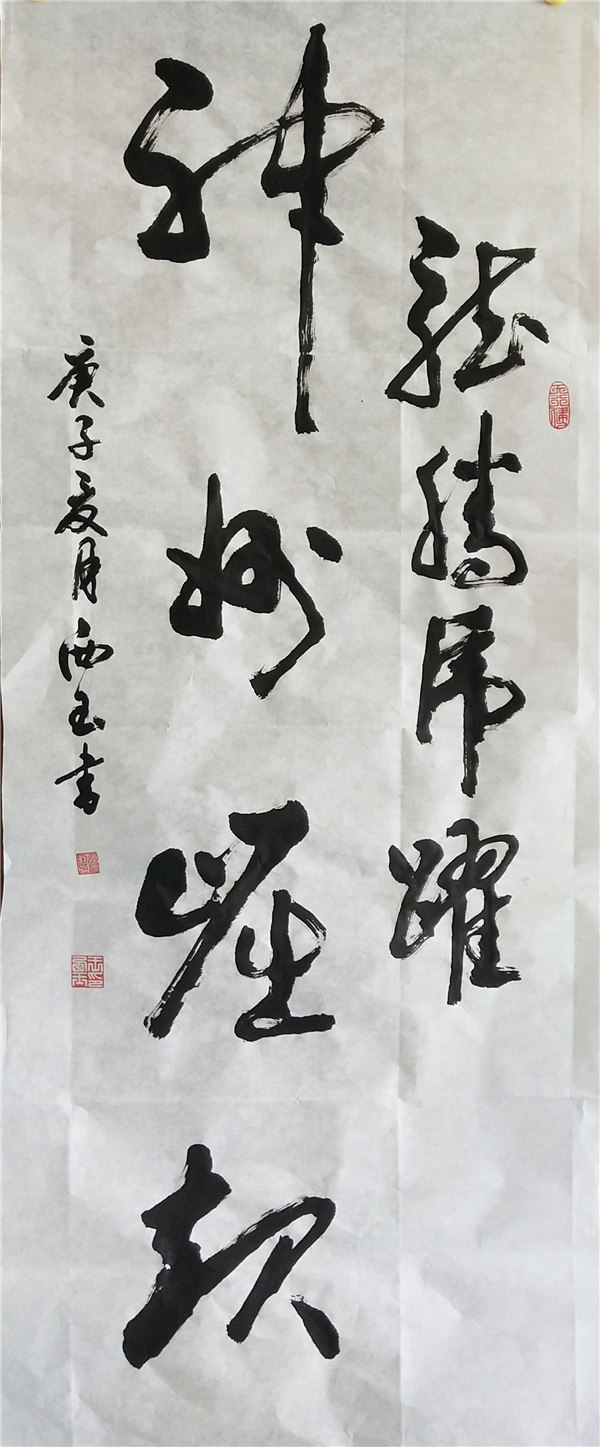 龍騰虎躍
天行健
神州崛起
庚子夏月西玉書